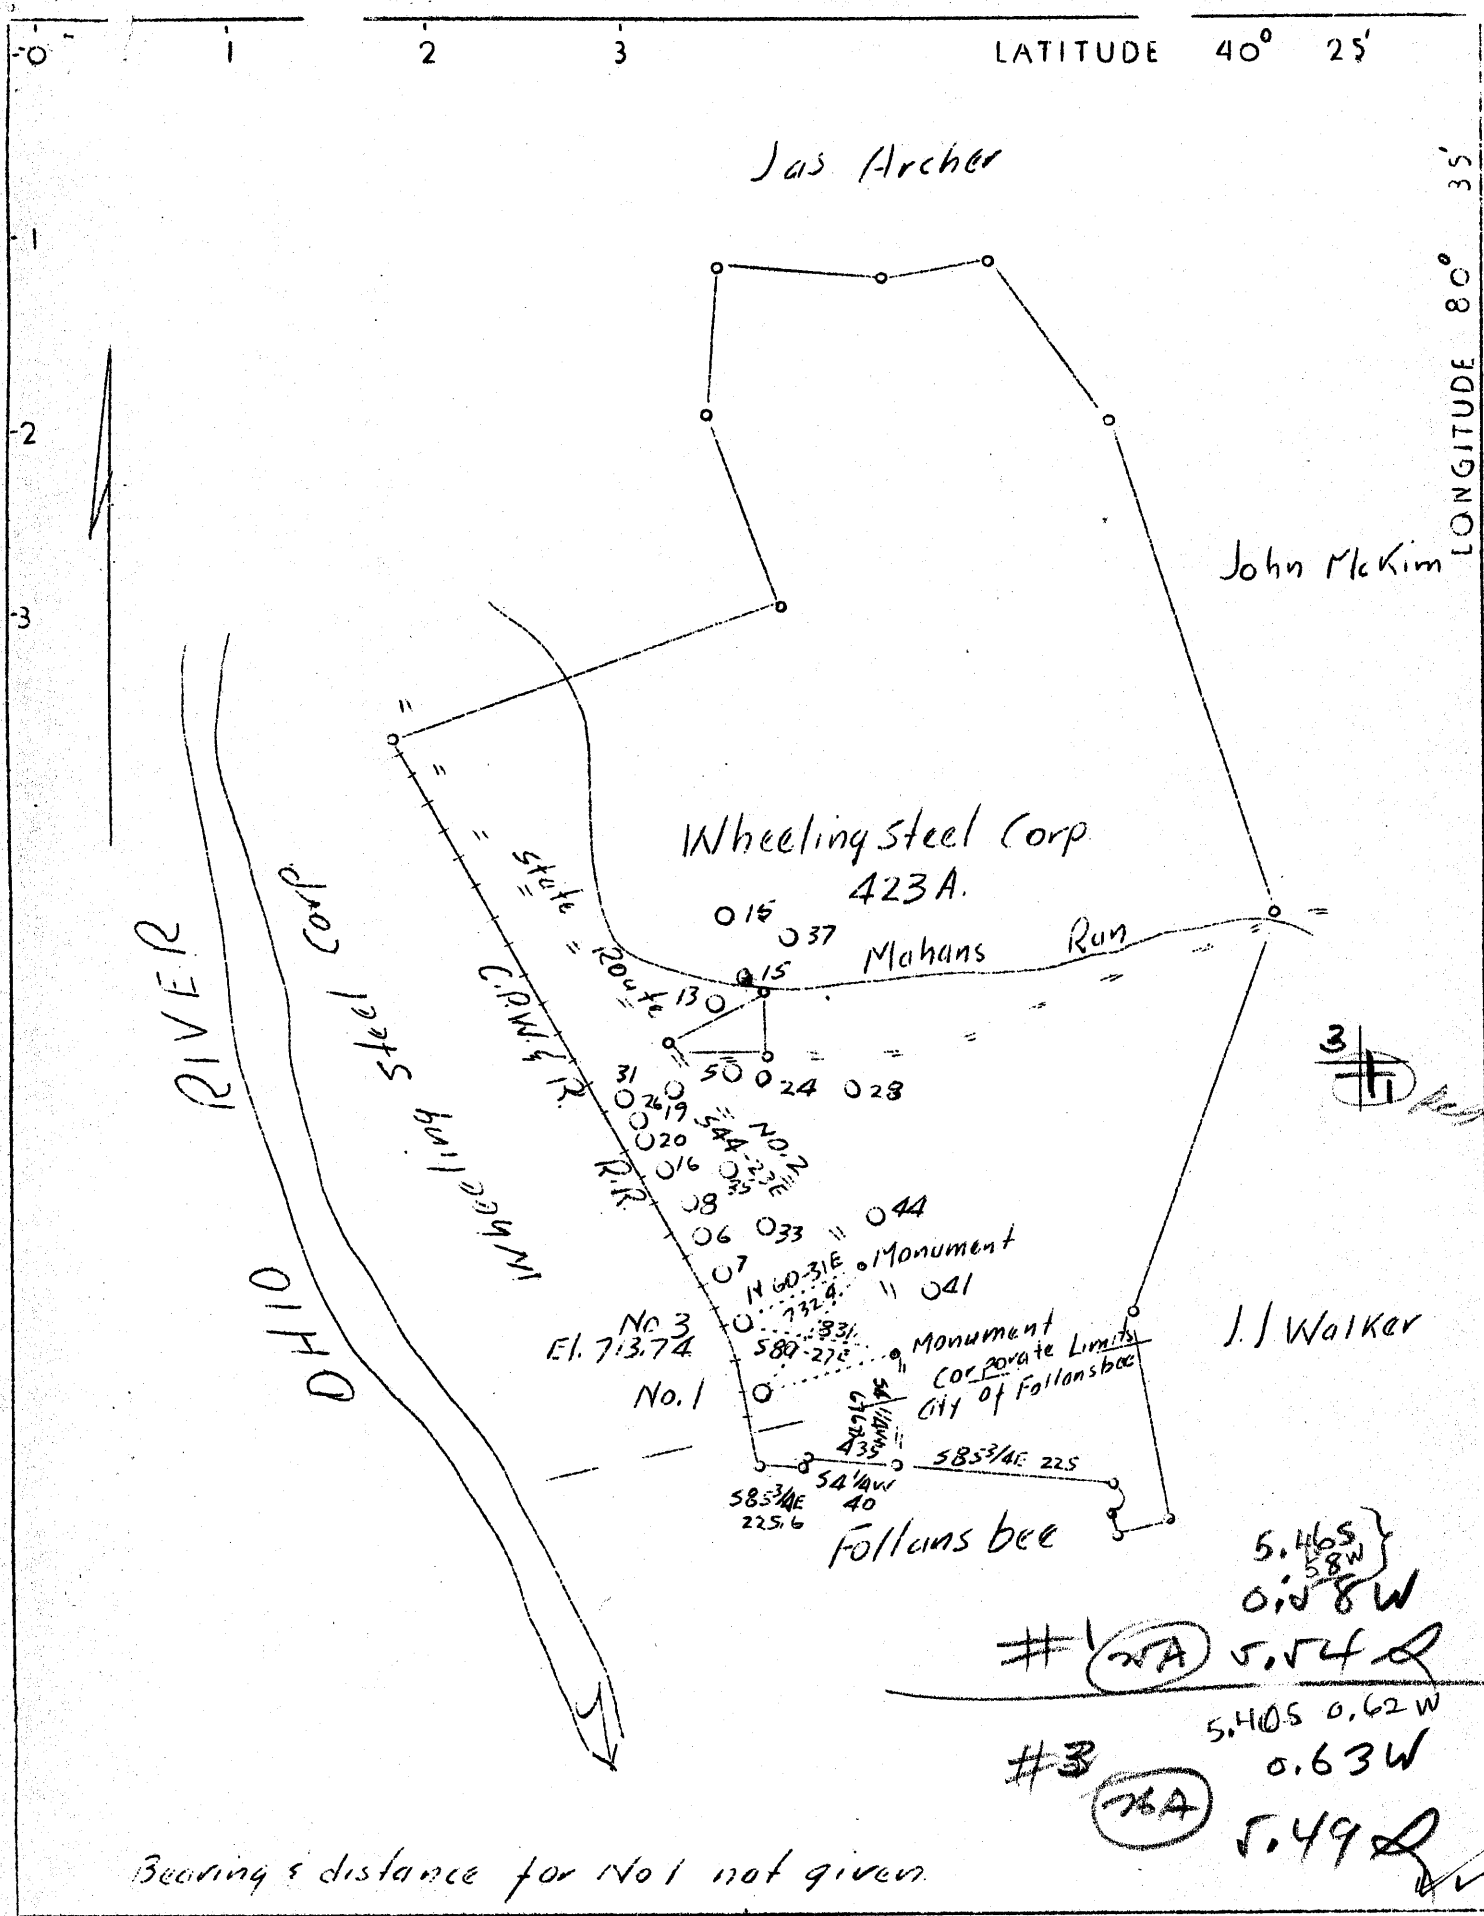 0 1 2 3 LATITUDE 40° 25'
LONGITUDE 80° 35'
1
2
3
Jas Archer
John McKim
Wheeling Steel Corp
423 A.
State Route
C.P.W. & R.
R.R.
Mahans Run
Wheeling Steel Corp
OHIO RIVER
15
37
15
13
5
24
28
31
26
19
20
16
35
8
6
33
44
7
41
NO. 2
S44-23E
N 60-31E
732.9
Monument
No 3
El. 713.74
831.
S89-27E
Monument
No. 1
Corporate Limits
City of Follansbee
J.J Walker
435
S85¾E 225
S85¾E
225.6
S4¼W
40
Follansbee
3
11
5.46S
.58W
0.58W
#1 5.54
5.40S 0.62W
#3 0.63W
5.49
Bearing & distance for No 1 not given.